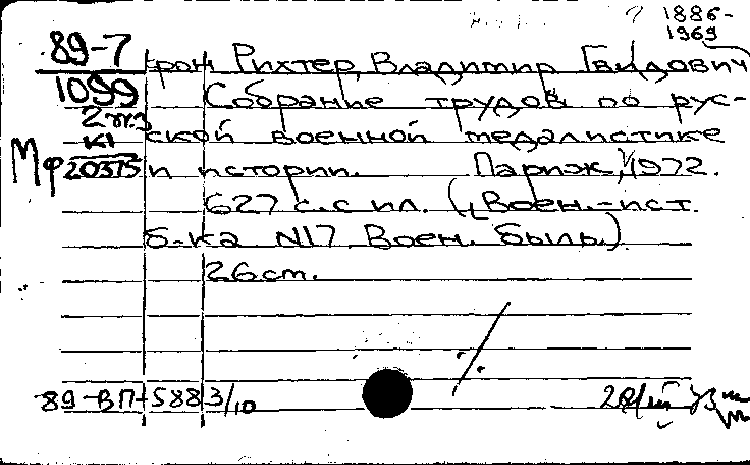 1886-
1969
89-7 фон Рихтер, Владимир Гвидович
1099 Собрание трудов по рус-
2 экз ской военной медалистике
К1
Мф 20375 и истории. Париж, 1972.
627 с. с ил. (Воен.-ист.
б-ка N17 Воен. быль.)
26 см.
89-ВП-5883/10